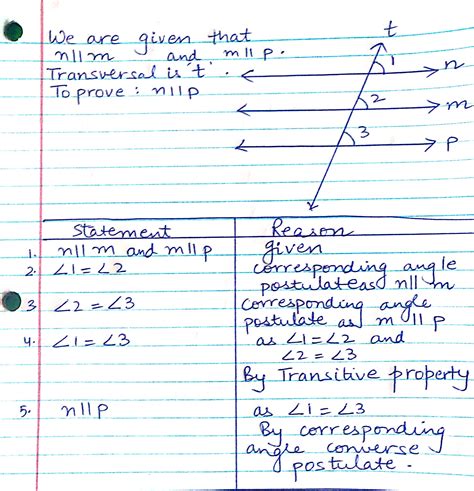 We are given that
n||m and m||p.
Transversal is 't'.
To prove : n||p
t
1
n
2
m
3
p
Statement Reason
1. n||m and m||p given
2. ∠1=∠2 corresponding angle
postulate as n||m
3 ∠2=∠3 corresponding angle
postulate as m||p
4. ∠1=∠3 as ∠1=∠2 and
∠2=∠3
By Transitive property
5. n||p as ∠1=∠3
By corresponding
angle converse
postulate.